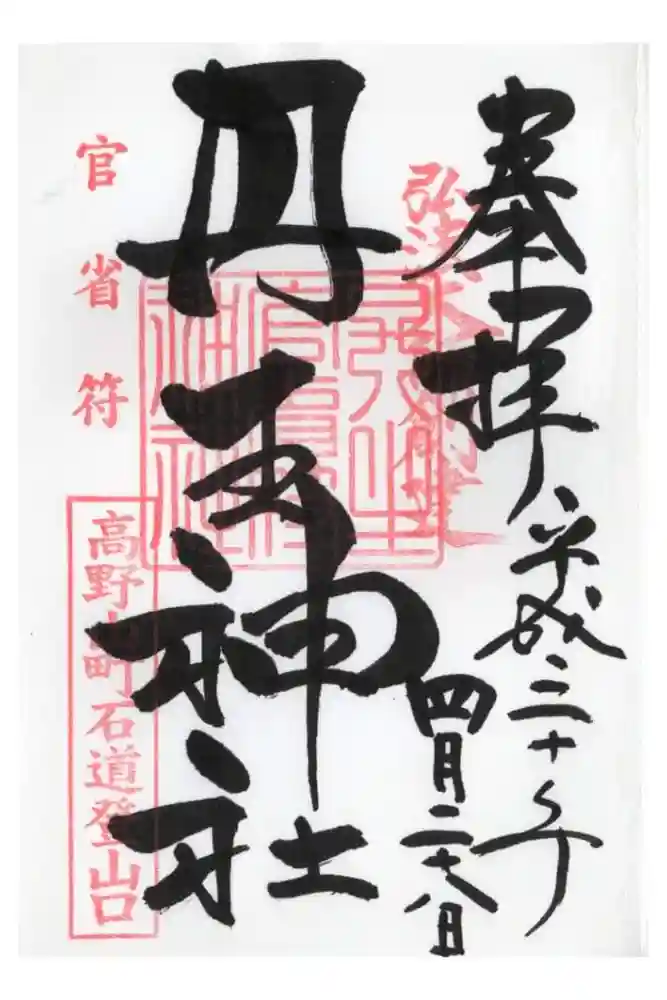 奉拝
平成三十年
四月二十八日
弘法大師創建
丹生神社
丹生
官省符
神社
官省符
高野山町石道登山口